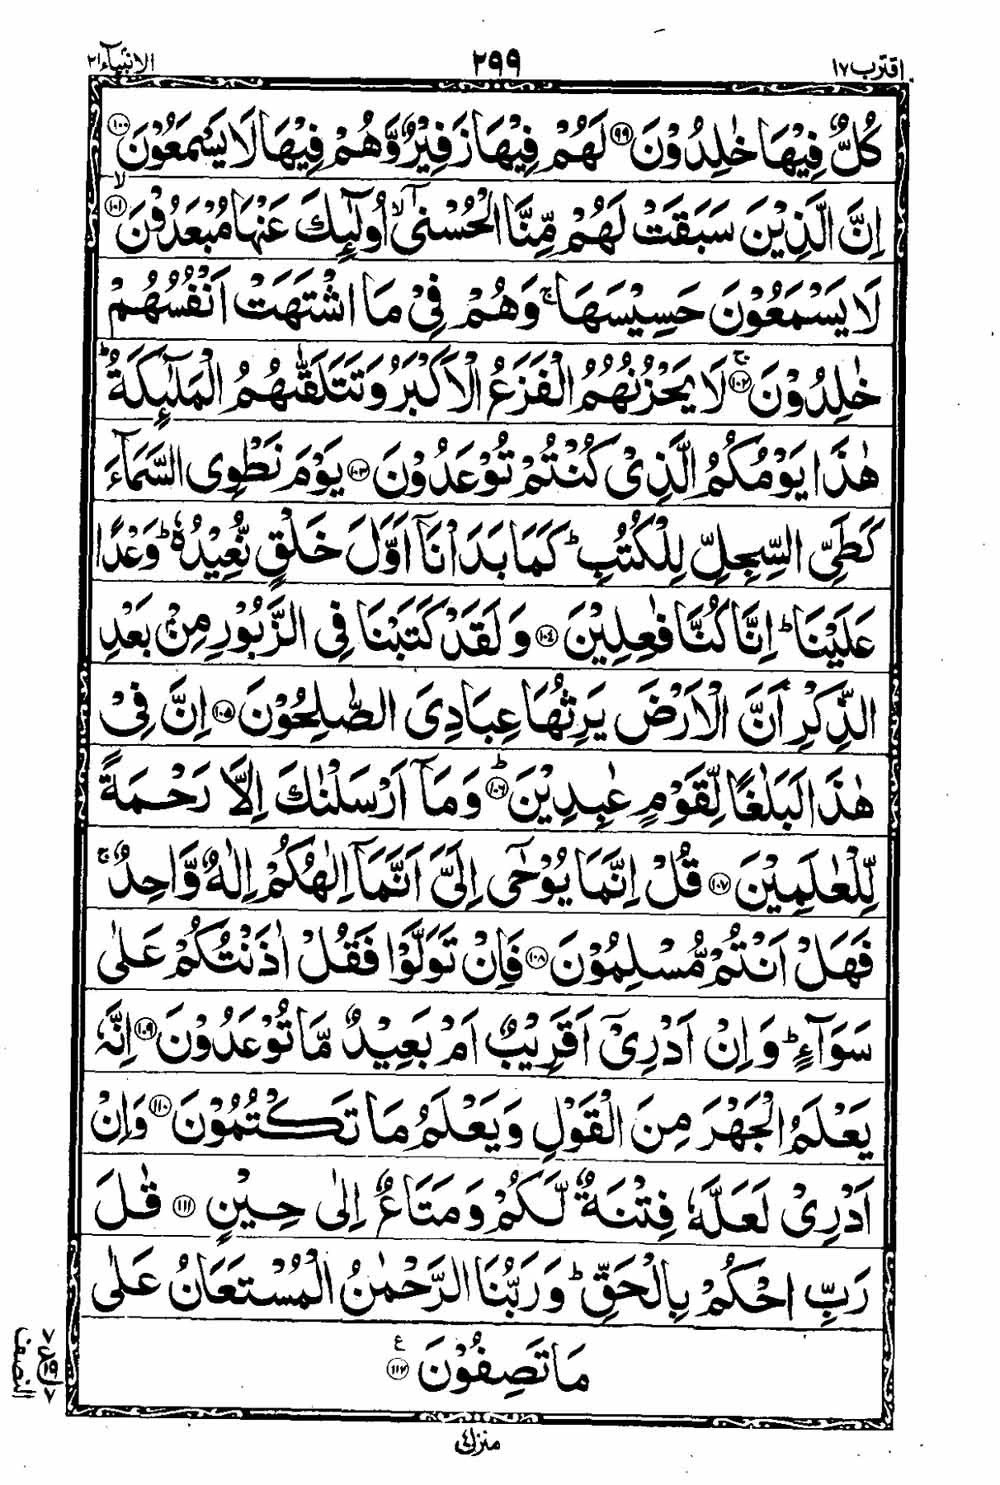 اقترب ١٧ ٢٩٩ الانبيآء ٢١
كُلٌّ فِيْهَا خٰلِدُوْنَ ﴿٩٩﴾ لَهُمْ فِيْهَا زَفِيْرٌ وَّهُمْ فِيْهَا لَا يَسْمَعُوْنَ ﴿١٠٠﴾
اِنَّ الَّذِيْنَ سَبَقَتْ لَهُمْ مِّنَّا الْحُسْنٰٓىۙ اُولٰٓئِكَ عَنْهَا مُبْعَدُوْنَ ﴿١٠١﴾ۙ
لَا يَسْمَعُوْنَ حَسِيْسَهَاۚ وَهُمْ فِيْ مَا اشْتَهَتْ اَنْفُسُهُمْ
خٰلِدُوْنَ ﴿١٠٢﴾ۚ لَا يَحْزُنُهُمُ الْفَزَعُ الْاَكْبَرُ وَتَتَلَقّٰىهُمُ الْمَلٰٓئِكَةُؕ
هٰذَا يَوْمُكُمُ الَّذِيْ كُنْتُمْ تُوْعَدُوْنَ ﴿١٠٣﴾ يَوْمَ نَطْوِى السَّمَآءَ
كَطَيِّ السِّجِلِّ لِلْكُتُبِؕ كَمَا بَدَاْنَآ اَوَّلَ خَلْقٍ نُّعِيْدُهٗؕ وَعْدًا
عَلَيْنَاؕ اِنَّا كُنَّا فٰعِلِيْنَ ﴿١٠٤﴾ وَلَقَدْ كَتَبْنَا فِى الزَّبُوْرِ مِنْۢ بَعْدِ
الذِّكْرِ اَنَّ الْاَرْضَ يَرِثُهَا عِبَادِيَ الصّٰلِحُوْنَ ﴿١٠٥﴾ اِنَّ فِيْ
هٰذَا لَبَلٰغًا لِّقَوْمٍ عٰبِدِيْنَ ﴿١٠٦﴾ؕ وَمَآ اَرْسَلْنٰكَ اِلَّا رَحْمَةً
لِّلْعٰلَمِيْنَ ﴿١٠٧﴾ قُلْ اِنَّمَا يُوْحٰٓى اِلَيَّ اَنَّمَآ اِلٰهُكُمْ اِلٰهٌ وَّاحِدٌۚ
فَهَلْ اَنْتُمْ مُّسْلِمُوْنَ ﴿١٠٨﴾ فَاِنْ تَوَلَّوْا فَقُلْ اٰذَنْتُكُمْ عَلٰى
سَوَآءٍؕ وَاِنْ اَدْرِيْٓ اَقَرِيْبٌ اَمْ بَعِيْدٌ مَّا تُوْعَدُوْنَ ﴿١٠٩﴾ اِنَّهٗ
يَعْلَمُ الْجَهْرَ مِنَ الْقَوْلِ وَيَعْلَمُ مَا تَكْتُمُوْنَ ﴿١١٠﴾ وَاِنْ
اَدْرِيْ لَعَلَّهٗ فِتْنَةٌ لَّكُمْ وَمَتَاعٌ اِلٰى حِيْنٍ ﴿١١١﴾ قٰلَ
رَبِّ احْكُمْ بِالْحَقِّؕ وَرَبُّنَا الرَّحْمٰنُ الْمُسْتَعَانُ عَلٰى
مَا تَصِفُوْنَ ﴿١١٢﴾ ع
النصف
منزل ٤